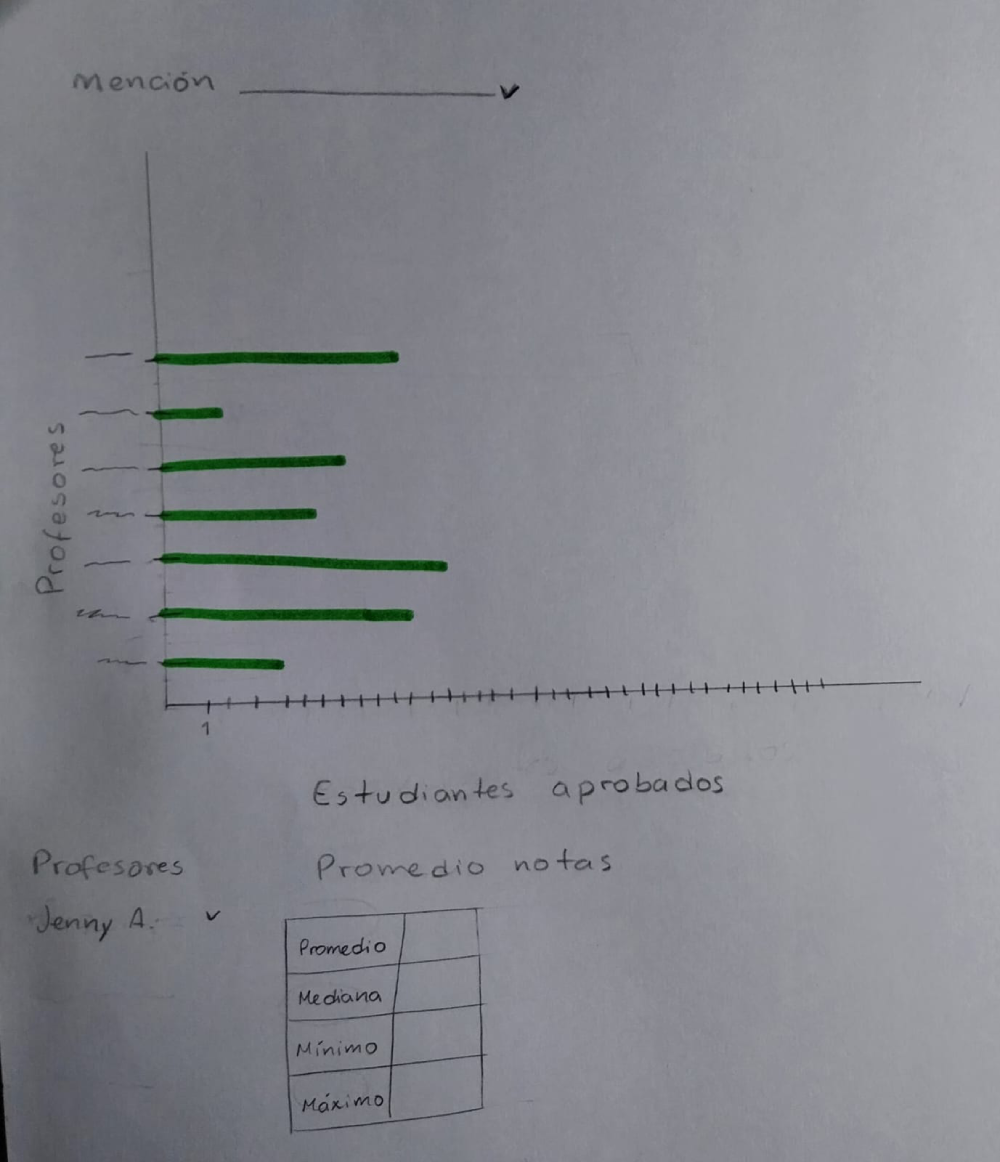 Mención
Profesores
1
Estudiantes aprobados
Profesores
Promedio notas
Jenny A.
Promedio
Mediana
Mínimo
Máximo